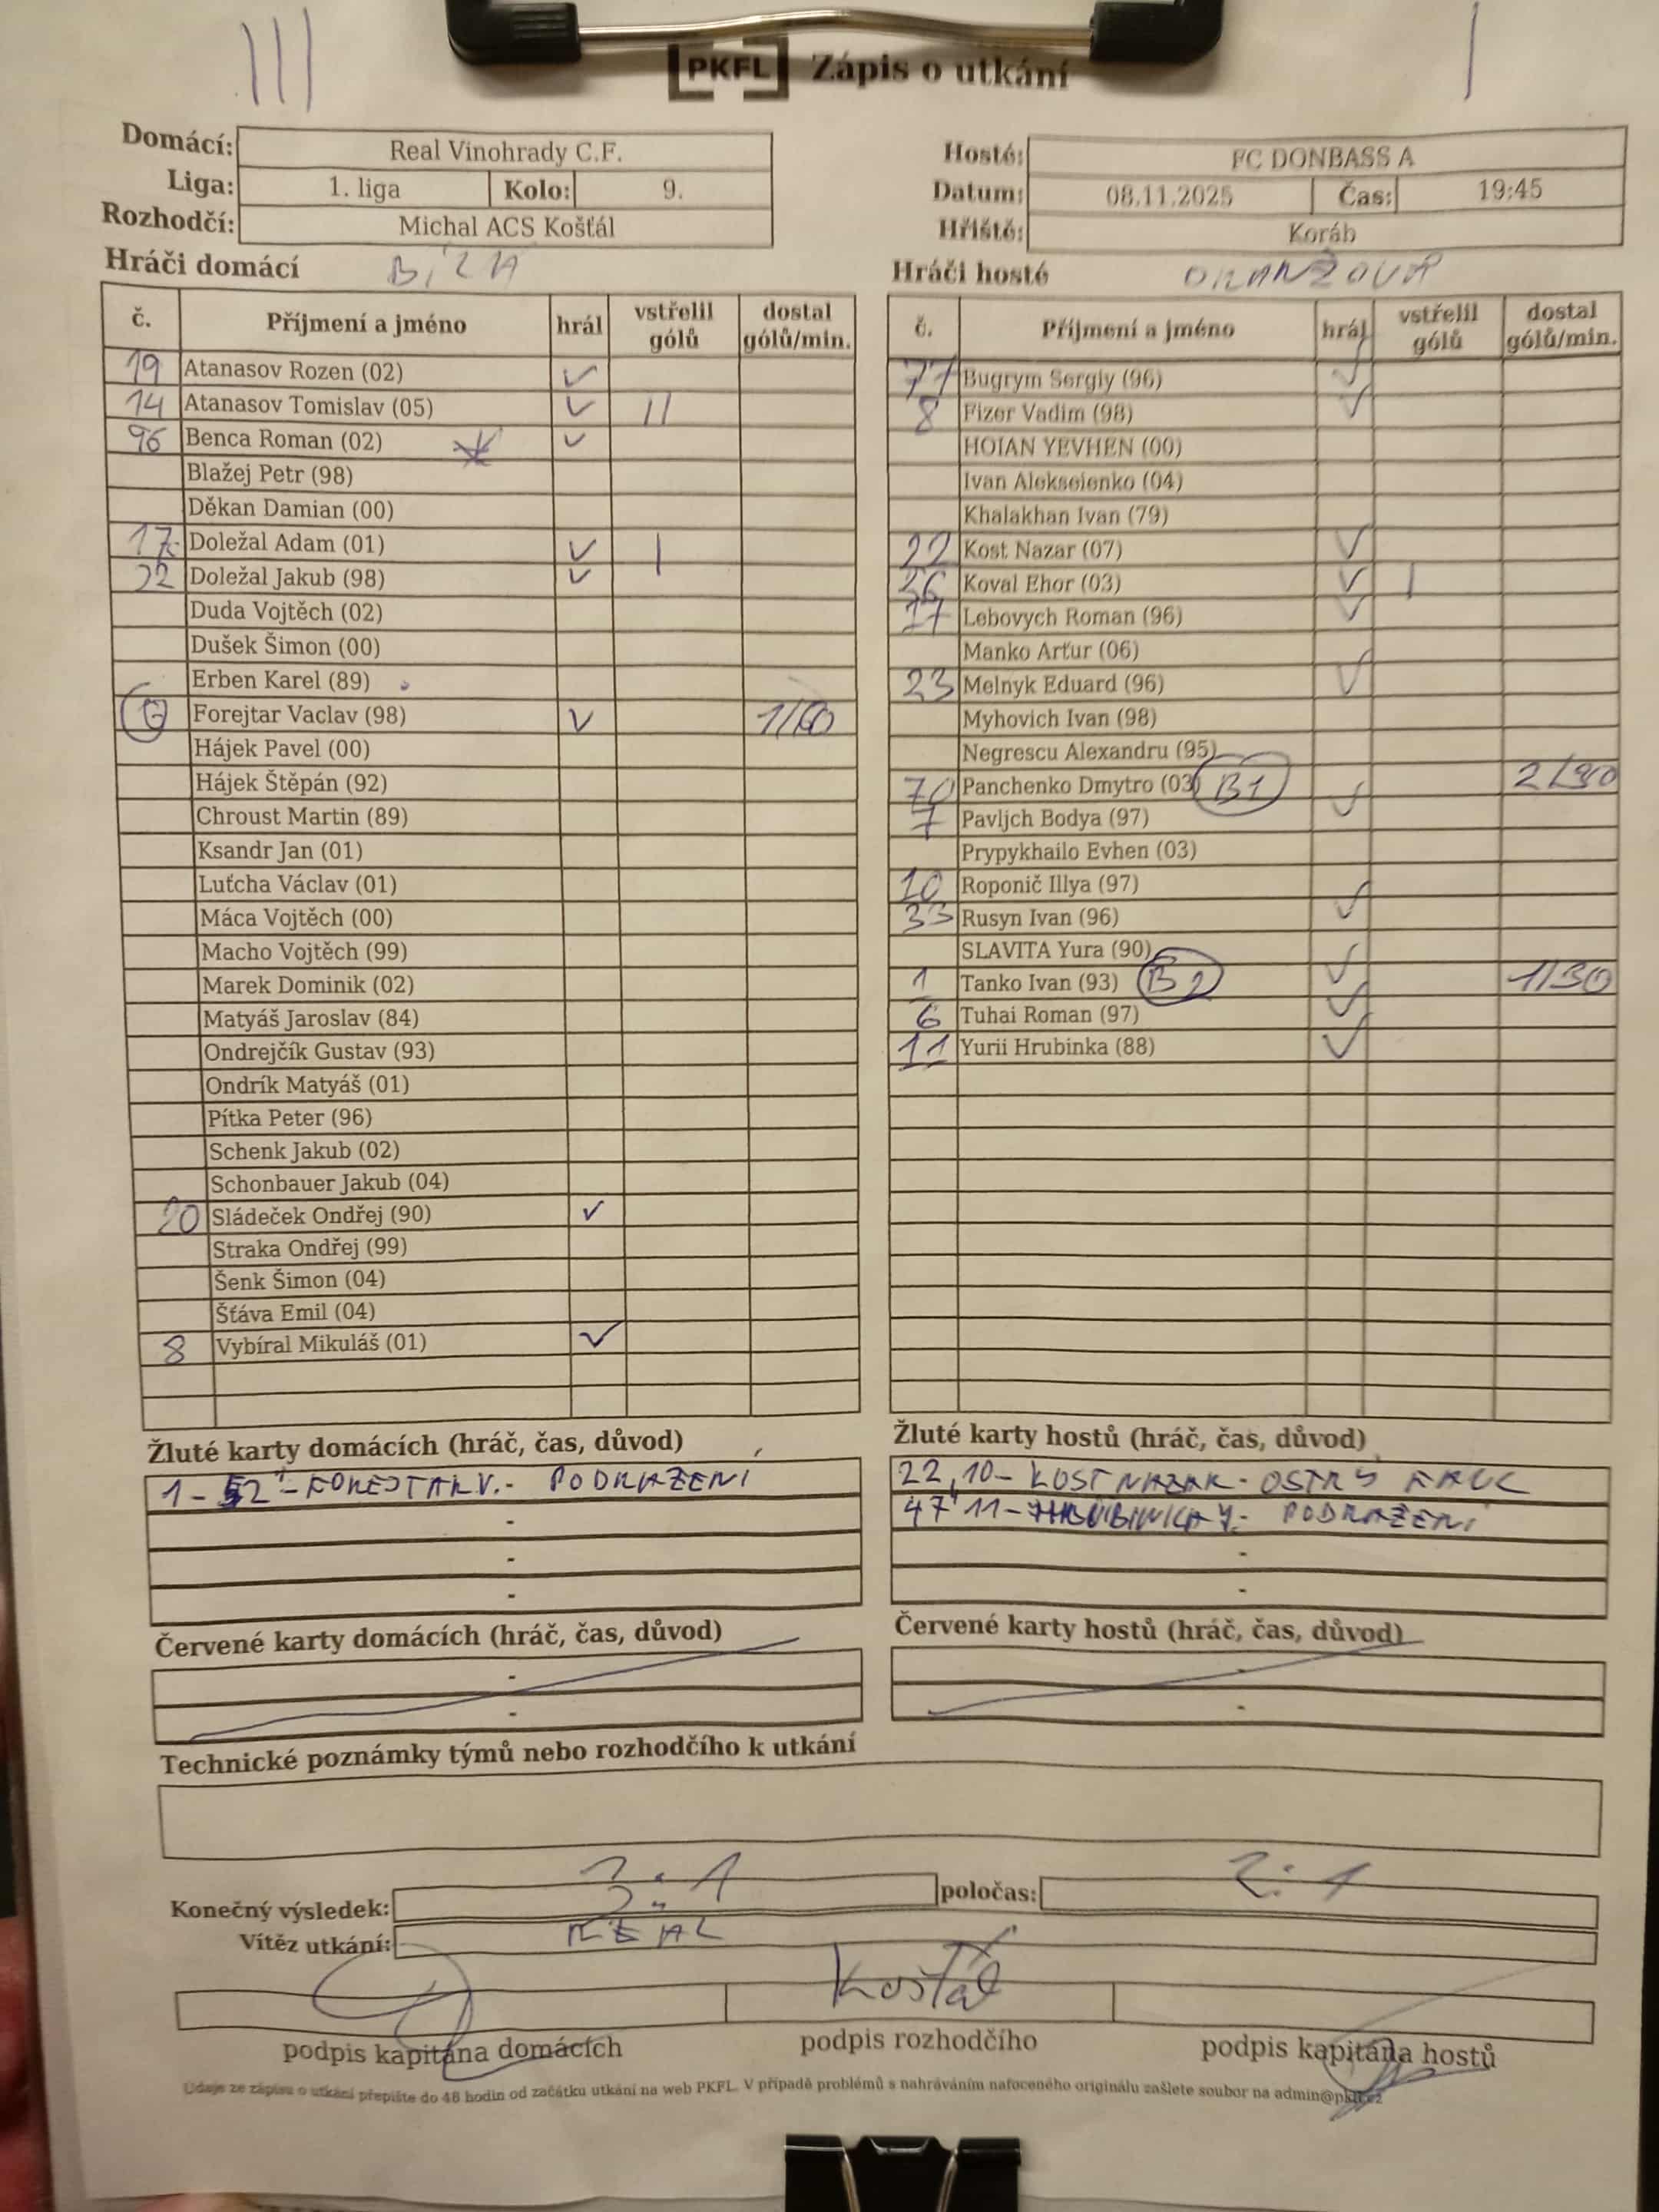 III
I
PKFL Zápis o utkání
Domácí: Real Vinohrady C.F.
Liga: 1. liga Kolo: 9.
Rozhodčí: Michal ACS Košťál
Hosté: FC DONBASS A
Datum: 08.11.2025 Čas: 19:45
Hřiště: Koráb
Hráči domácí BÍLÁ
č. Příjmení a jméno hrál vstřelil gólů dostal gólů/min.
19 Atanasov Rozen (02) ✓
14 Atanasov Tomislav (05) ✓ II
96 Benca Roman (02) ✓
Blažej Petr (98)
Děkan Damian (00)
17 Doležal Adam (01) ✓ I
22 Doležal Jakub (98) ✓
Duda Vojtěch (02)
Dušek Šimon (00)
Erben Karel (89)
Forejtar Vaclav (98) ✓ 1/60
Hájek Pavel (00)
Hájek Štěpán (92)
Chroust Martin (89)
Ksandr Jan (01)
Luťcha Václav (01)
Máca Vojtěch (00)
Macho Vojtěch (99)
Marek Dominik (02)
Matyáš Jaroslav (84)
Ondrejčík Gustav (93)
Ondrík Matyáš (01)
Pítka Peter (96)
Schenk Jakub (02)
Schonbauer Jakub (04)
20 Sládeček Ondřej (90) ✓
Straka Ondřej (99)
Šenk Šimon (04)
Šťáva Emil (04)
8 Vybíral Mikuláš (01) ✓
Hráči hosté ORANŽOVÁ
č. Příjmení a jméno hrál vstřelil gólů dostal gólů/min.
77 Bugrym Sergiy (96) ✓
8 Fizer Vadim (98) ✓
HOIAN YEVHEN (00)
Ivan Alekseienko (04)
Khalakhan Ivan (79)
22 Kost Nazar (07) ✓
26 Koval Ehor (03) ✓ I
17 Lebovych Roman (96) ✓
Manko Artur (06)
23 Melnyk Eduard (96) ✓
Myhovich Ivan (98)
Negrescu Alexandru (95)
70 Panchenko Dmytro (03) B1 2/30
7 Pavljch Bodya (97) ✓
Prypykhailo Evhen (03)
10 Roponič Illya (97)
33 Rusyn Ivan (96) ✓
SLAVITA Yura (90)
1 Tanko Ivan (93) B2 ✓ 1/30
6 Tuhai Roman (97) ✓
11 Yurii Hrubinka (88) ✓
Žluté karty domácích (hráč, čas, důvod)
1 - 52' - FOREJTAR V. - PODRAŽENÍ
-
-
-
Žluté karty hostů (hráč, čas, důvod)
22, 10 - KOST NAZAR - OSTRÝ FAUL
47' 11 - HRUBINKA Y. - PODRAŽENÍ
-
-
Červené karty domácích (hráč, čas, důvod)
-
-
Červené karty hostů (hráč, čas, důvod)
-
-
Technické poznámky týmů nebo rozhodčího k utkání
Konečný výsledek: 3:1 poločas: 2:1
Vítěz utkání: REAL
Košťál
podpis kapitána domácích podpis rozhodčího podpis kapitána hostů
Údaje ze zápisu o utkání přepište do 48 hodin od začátku utkání na web PKFL. V případě problémů s nahráváním nafoceného originálu zašlete soubor na admin@pkfl.cz